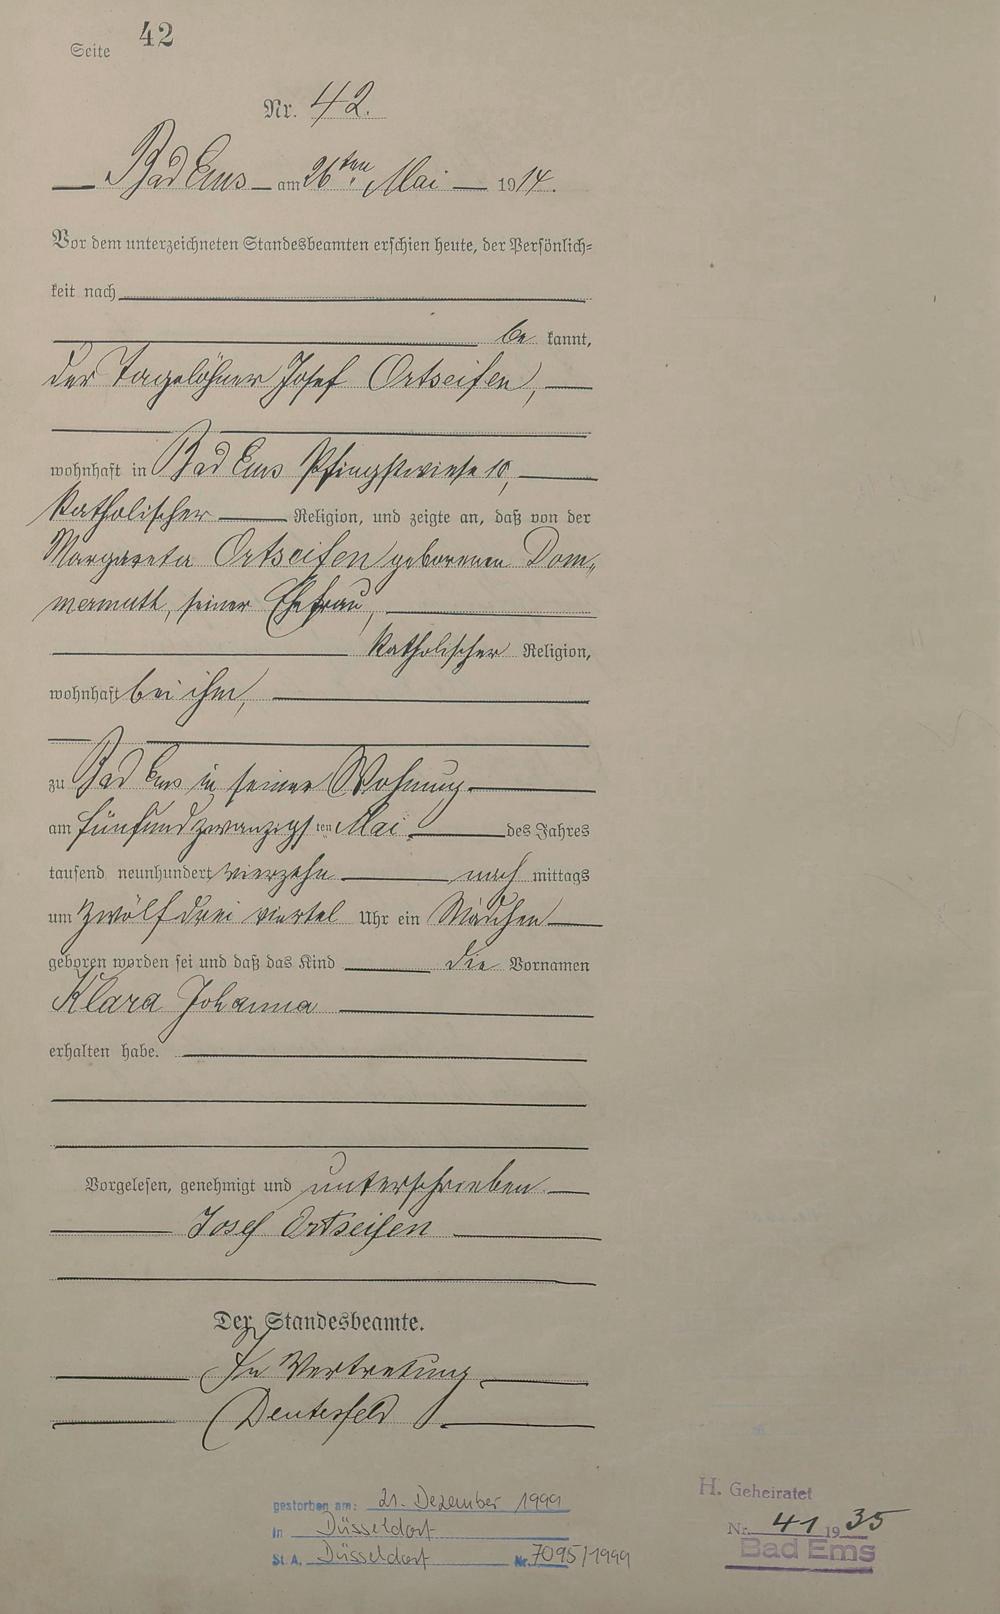 Seite 42
Nr. 42.
Bad Ems am 26ten Mai 1914.
Vor dem unterzeichneten Standesbeamten erschien heute, der Persönlich=
keit nach
be kannt,
der Tagelöhner Josef Ortseifen,
wohnhaft in Bad Ems Pfingstwiese 10,
katholischer Religion, und zeigte an, daß von der
Margareta Ortseifen geborenen Dom=
mermuth, seiner Ehefrau,
katholischer Religion,
wohnhaft bei ihm,
zu Bad Ems in seiner Wohnung
am fünfundzwanzigsten Mai des Jahres
tausend neunhundert vierzehn nach mittags
um zwölf drei viertel Uhr ein Mädchen
geboren worden sei und daß das Kind die Vornamen
Klara Johanna
erhalten habe.
Vorgelesen, genehmigt und unterschrieben.
Josef Ortseifen
Der Standesbeamte.
In Vertretung
Deutesfeld
gestorben am: 21. Dezember 1999
in Düsseldorf
St. A. Düsseldorf Nr. 7095/1999
H. Geheiratet
Nr. 41 1935
Bad Ems